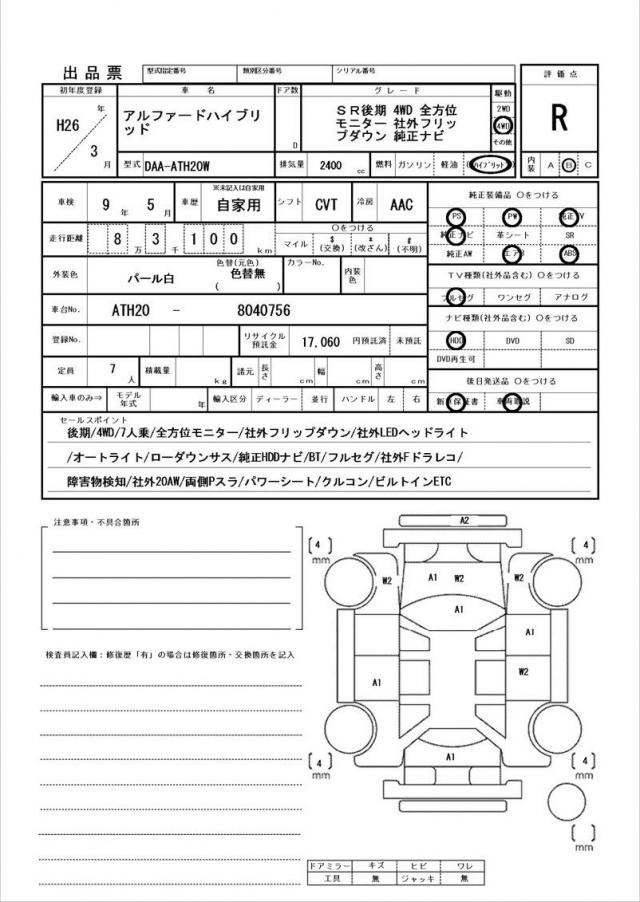 出品票 型式指定番号 類別区分番号 シリアル番号
初年度登録 車名 ドア数 グレード 駆動 評価点
H26 年 3 月
アルファードハイブリ
ッド
D
SR後期 4WD 全方位
モニター 社外フリッ
プダウン 純正ナビ
2WD
4WD
その他
R
型式 DAA-ATH20W 排気量 2400 cc 燃料 ガソリン 軽油 (ハイブリット) 内装 A B C
車検 9 年 5 月 車歴 ※未記入は自家用 自家用 シフト CVT 冷房 AAC
純正装備品 〇をつける
PS PW 純正TV
純正ナビ 革シート SR
純正AW エアB ABS
走行距離 8 万 3 千 1 0 0 km 〇をつける マイル $(交換) *(改ざん) #(不明)
外装色 パール白 色替(元色) 色替無 ( ) カラーNo. 内装色
TV種類(社外品含む) 〇をつける
フルセグ ワンセグ アナログ
車台No. ATH20 - 8040756
ナビ種類(社外品含む) 〇をつける
HDD DVD SD
DVD再生可
登録No. リサイクル預託金 17,060 円預託済 未預託
定員 7 人 積載量 kg 諸元 長さ cm 幅 cm 高さ cm
後日発送品 〇をつける
新車保証書 車両取説
輸入車のみ⇒ モデル年式 年 輸入区分 ディーラー 並行 ハンドル 左 右
セールスポイント
後期/4WD/7人乗/全方位モニター/社外フリップダウン/社外LEDヘッドライト
/オートライト/ローダウンサス/純正HDDナビ/BT/フルセグ/社外Fドラレコ/
障害物検知/社外20AW/両側Pスラ/パワーシート/クルコン/ビルトインETC
注意事項・不具合箇所
検査員記入欄：修復歴「有」の場合は修復箇所・交換箇所を記入
A2
[4] mm [4] mm
W2 A1 W2 W2
A1
A1
A1 W2
A1
[4] mm [4] mm
[ ] mm
ドアミラー キズ ヒビ ワレ
工具 無 ジャッキ 無